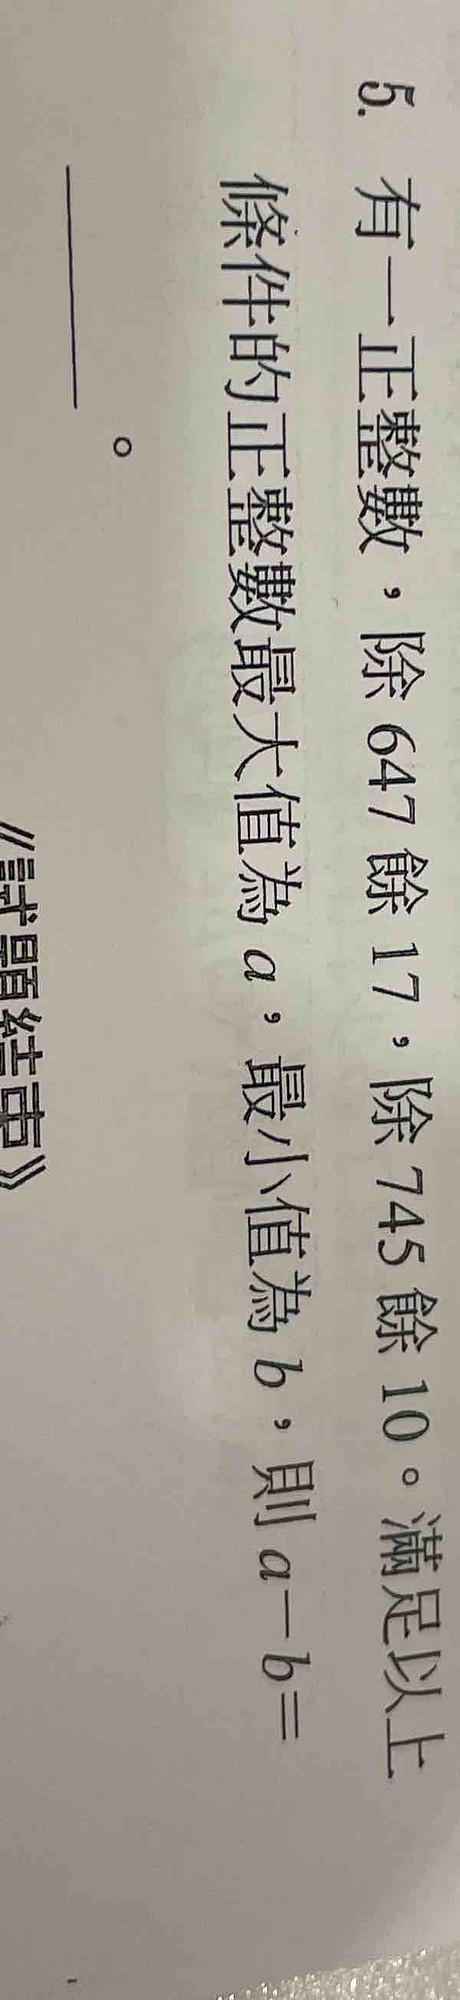 5. 有一正整數，除 647 餘 17，除 745 餘 10。滿足以上
條件的正整數最大值為 a，最小值為 b，則 a－b＝
＿＿＿＿。
《試題結束》